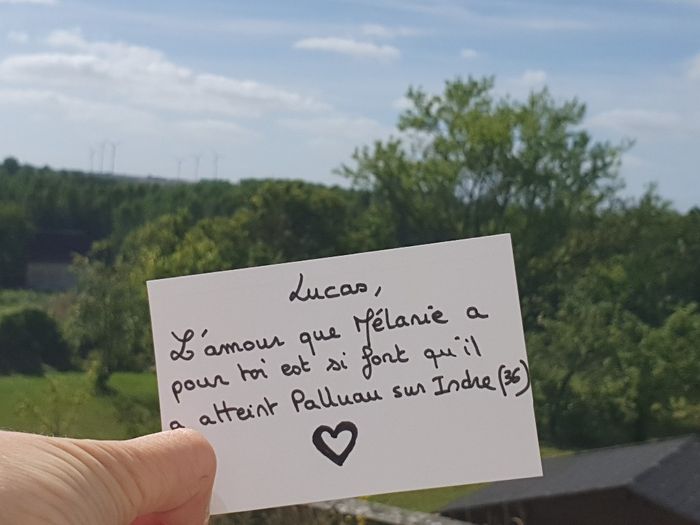 Lucas,
L'amour que Mélanie a
pour toi est si fort qu'il
a atteint Palluau sur Indre (36)